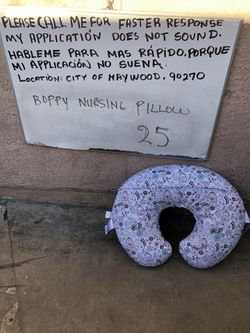 PLEASE CALL ME FOR FASTER RESPONSE
MY APPLICATION DOES NOT SOUND.
HABLEME PARA MAS RÁPIDO, PORQUE
MI APPLICACIÓN NO SUENA.
LOCATION: CITY OF MAYWOOD, 90270
BOPPY NURSING PILLOW
25